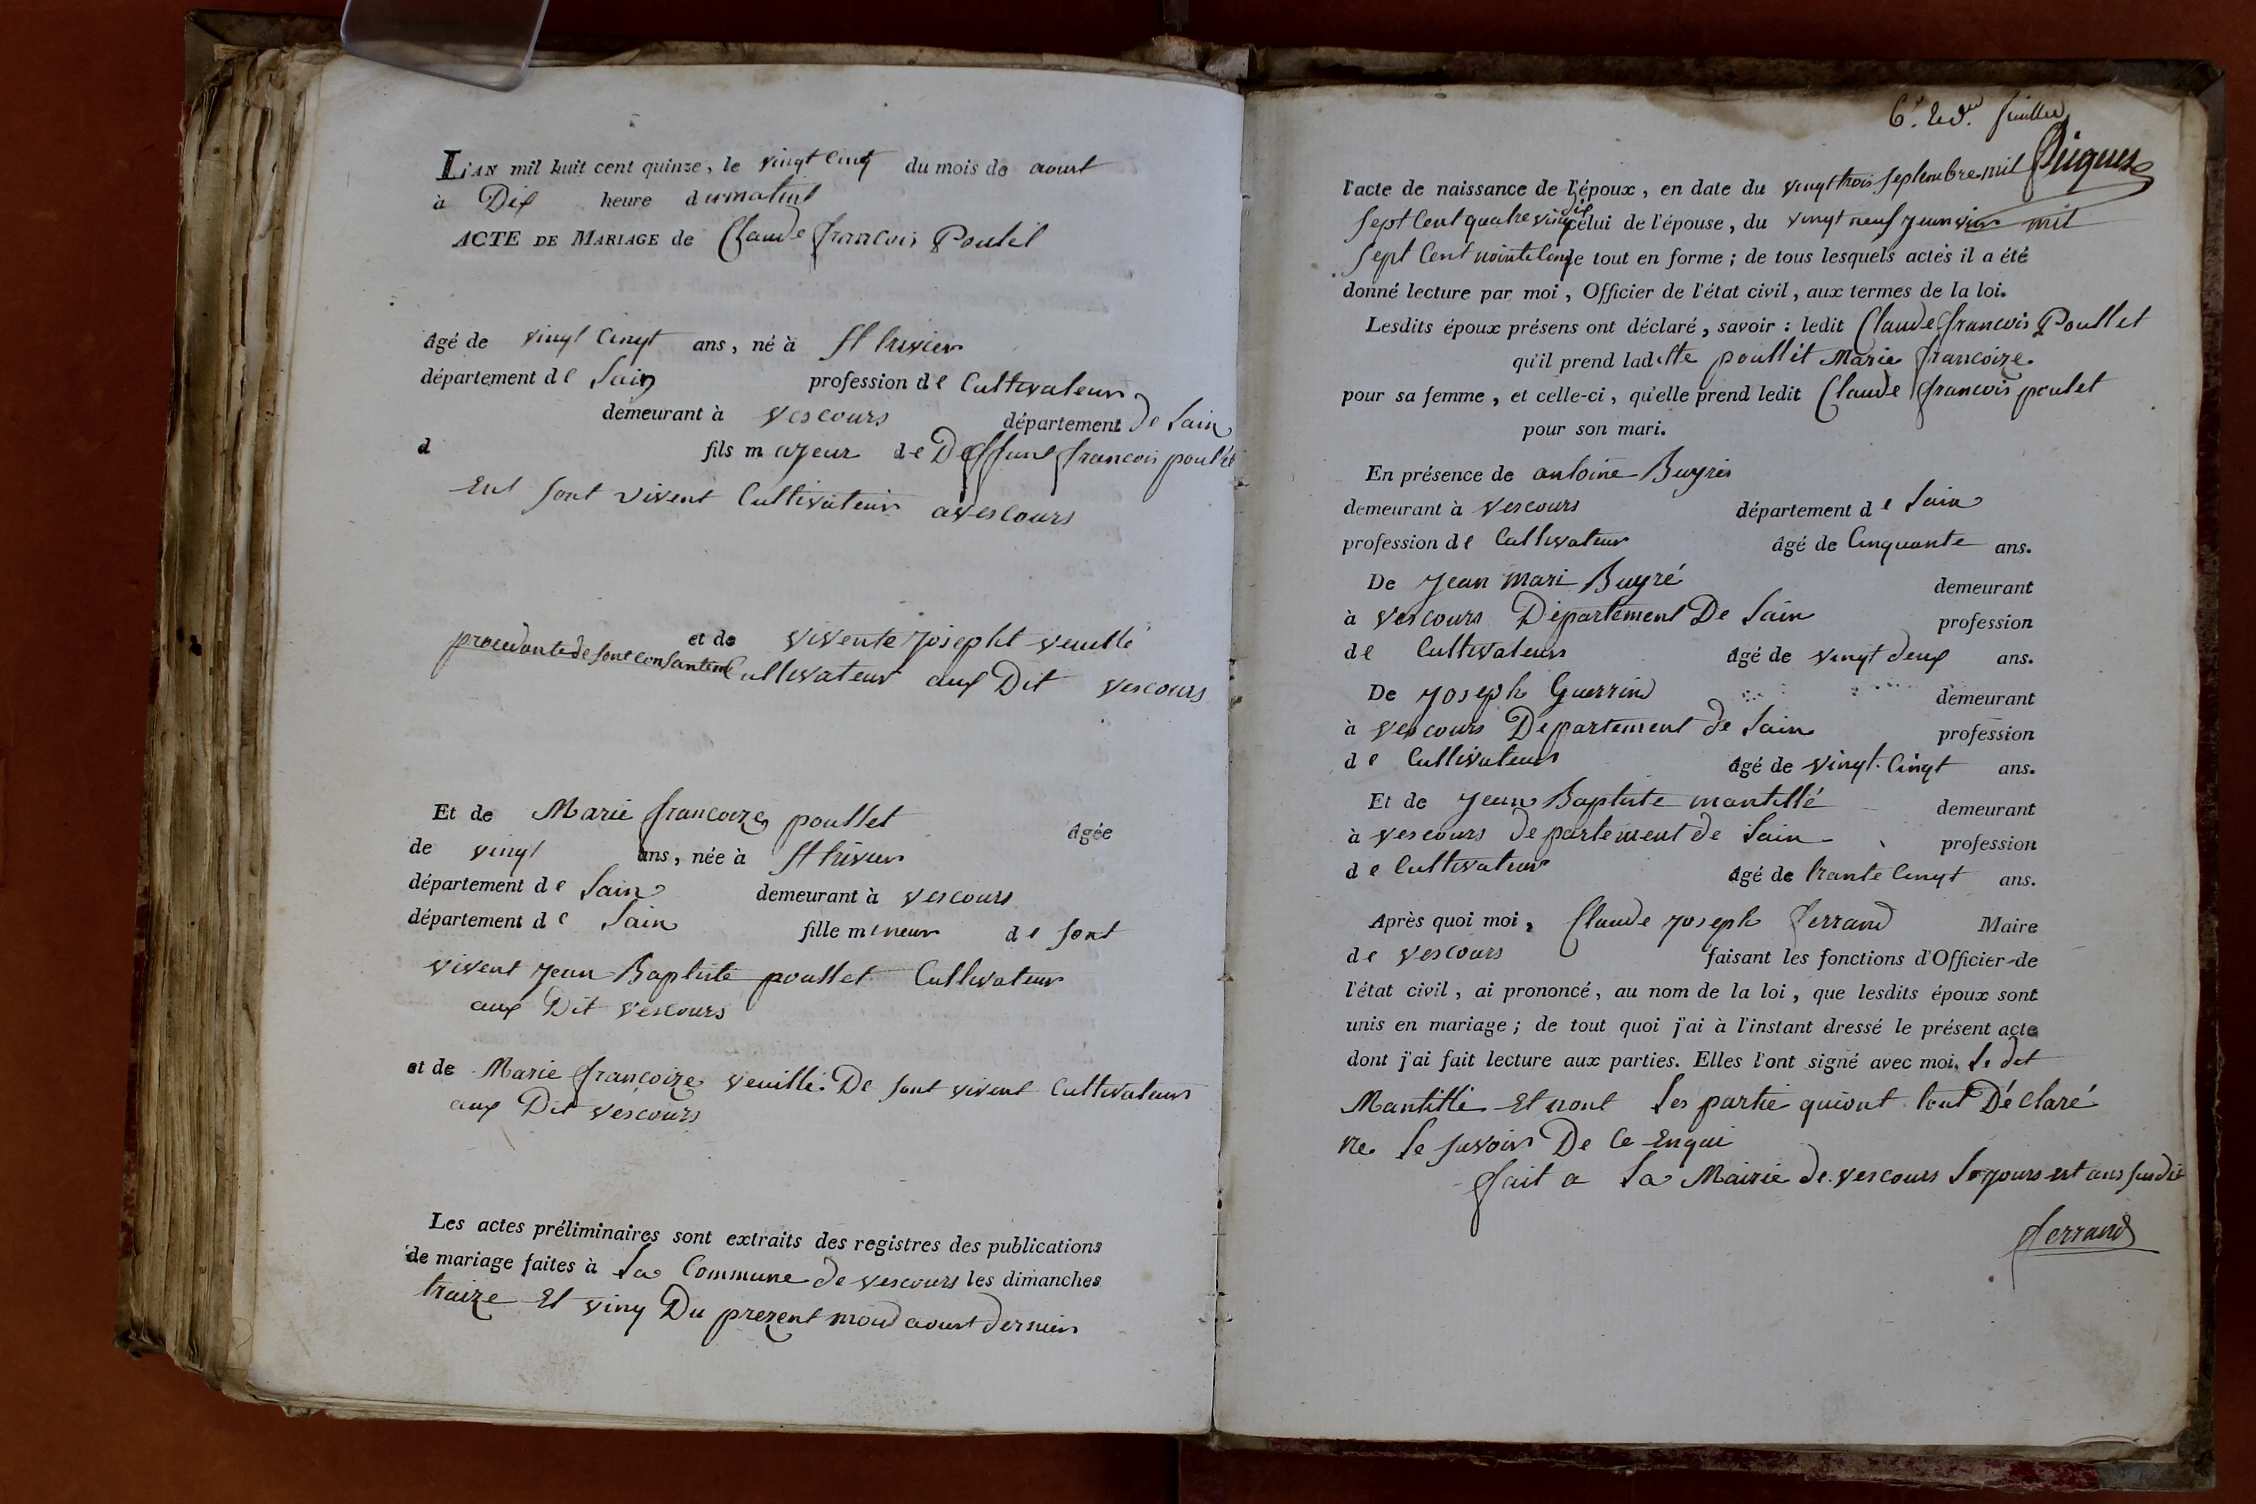 L'AN mil huit cent quinze, le vingt cinq du mois de aoust
à Dix heure du matint
ACTE DE MARIAGE de Claude françois Poulet
âgé de vingt cinqt ans, né à St trivier
département de Lain profession de Cultivateur
demeurant à vescours département de Lain
d fils majeur de Deffunt françois poulet
Ent sont vivent Cultivateur a vescours
et de vivente Josepht veuille
procedante de sont consantement Cultivateur aux Dit vescours
Et de Marie françoize poullet âgée
de vingt ans, née à St trivier
département de Lain demeurant à vescours
département de Lain fille mineur de sont
vivent Jean Baptiste poullet Cultivateur
aux Dit vescours
et de Marie françoize veuille. De sont vivent Cultivateur
aux Dit vescours
Les actes préliminaires sont extraits des registres des publications
de mariage faites à La Commune de vescours les dimanches
traize Et ving Du prezent mois aoust dernier
6e. feuillet
Piquet
l'acte de naissance de l'époux, en date du vingt trois septembre mil
sept Cent quatre vingt dix celui de l'épouse, du vingt neuf Janvier mil
sept Cent nointe le tout en forme; de tous lesquels actes il a été
donné lecture par moi, Officier de l'état civil, aux termes de la loi.
Lesdits époux présens ont déclaré, savoir: ledit Claude françois Poullet
qu'il prend laditte poullét Marie françoize
pour sa femme, et celle-ci, qu'elle prend ledit Claude françois poulet
pour son mari.
En présence de antoine Buyres
demeurant à vescours département de Lain
profession de Cultivateur âgé de Cinquante ans.
De Jean mari Buyré demeurant
à vescours Département De Lain profession
de Cultivateur âgé de vingt deux ans.
De Joseph Guerrin demeurant
à vescours Département de Lain profession
de Cultivateur âgé de vingt. Cinqt ans.
Et de Jean Baptiste mantillé demeurant
à vescours departement de Lain profession
de Cultivateur âgé de trante Cinqt ans.
Après quoi moi, Claude Joseph ferrand Maire
de vescours faisant les fonctions d'Officier de
l'état civil, ai prononcé, au nom de la loi, que lesdits époux sont
unis en mariage; de tout quoi j'ai à l'instant dressé le présent acte
dont j'ai fait lecture aux parties. Elles l'ont signé avec moi, Le dit
Mantillé Et nont Les partie quiont tout Déclaré
ne Le savoir De Ce Enqui
fait a La Mairie de vescours Le jours et ans susdit
ferrand